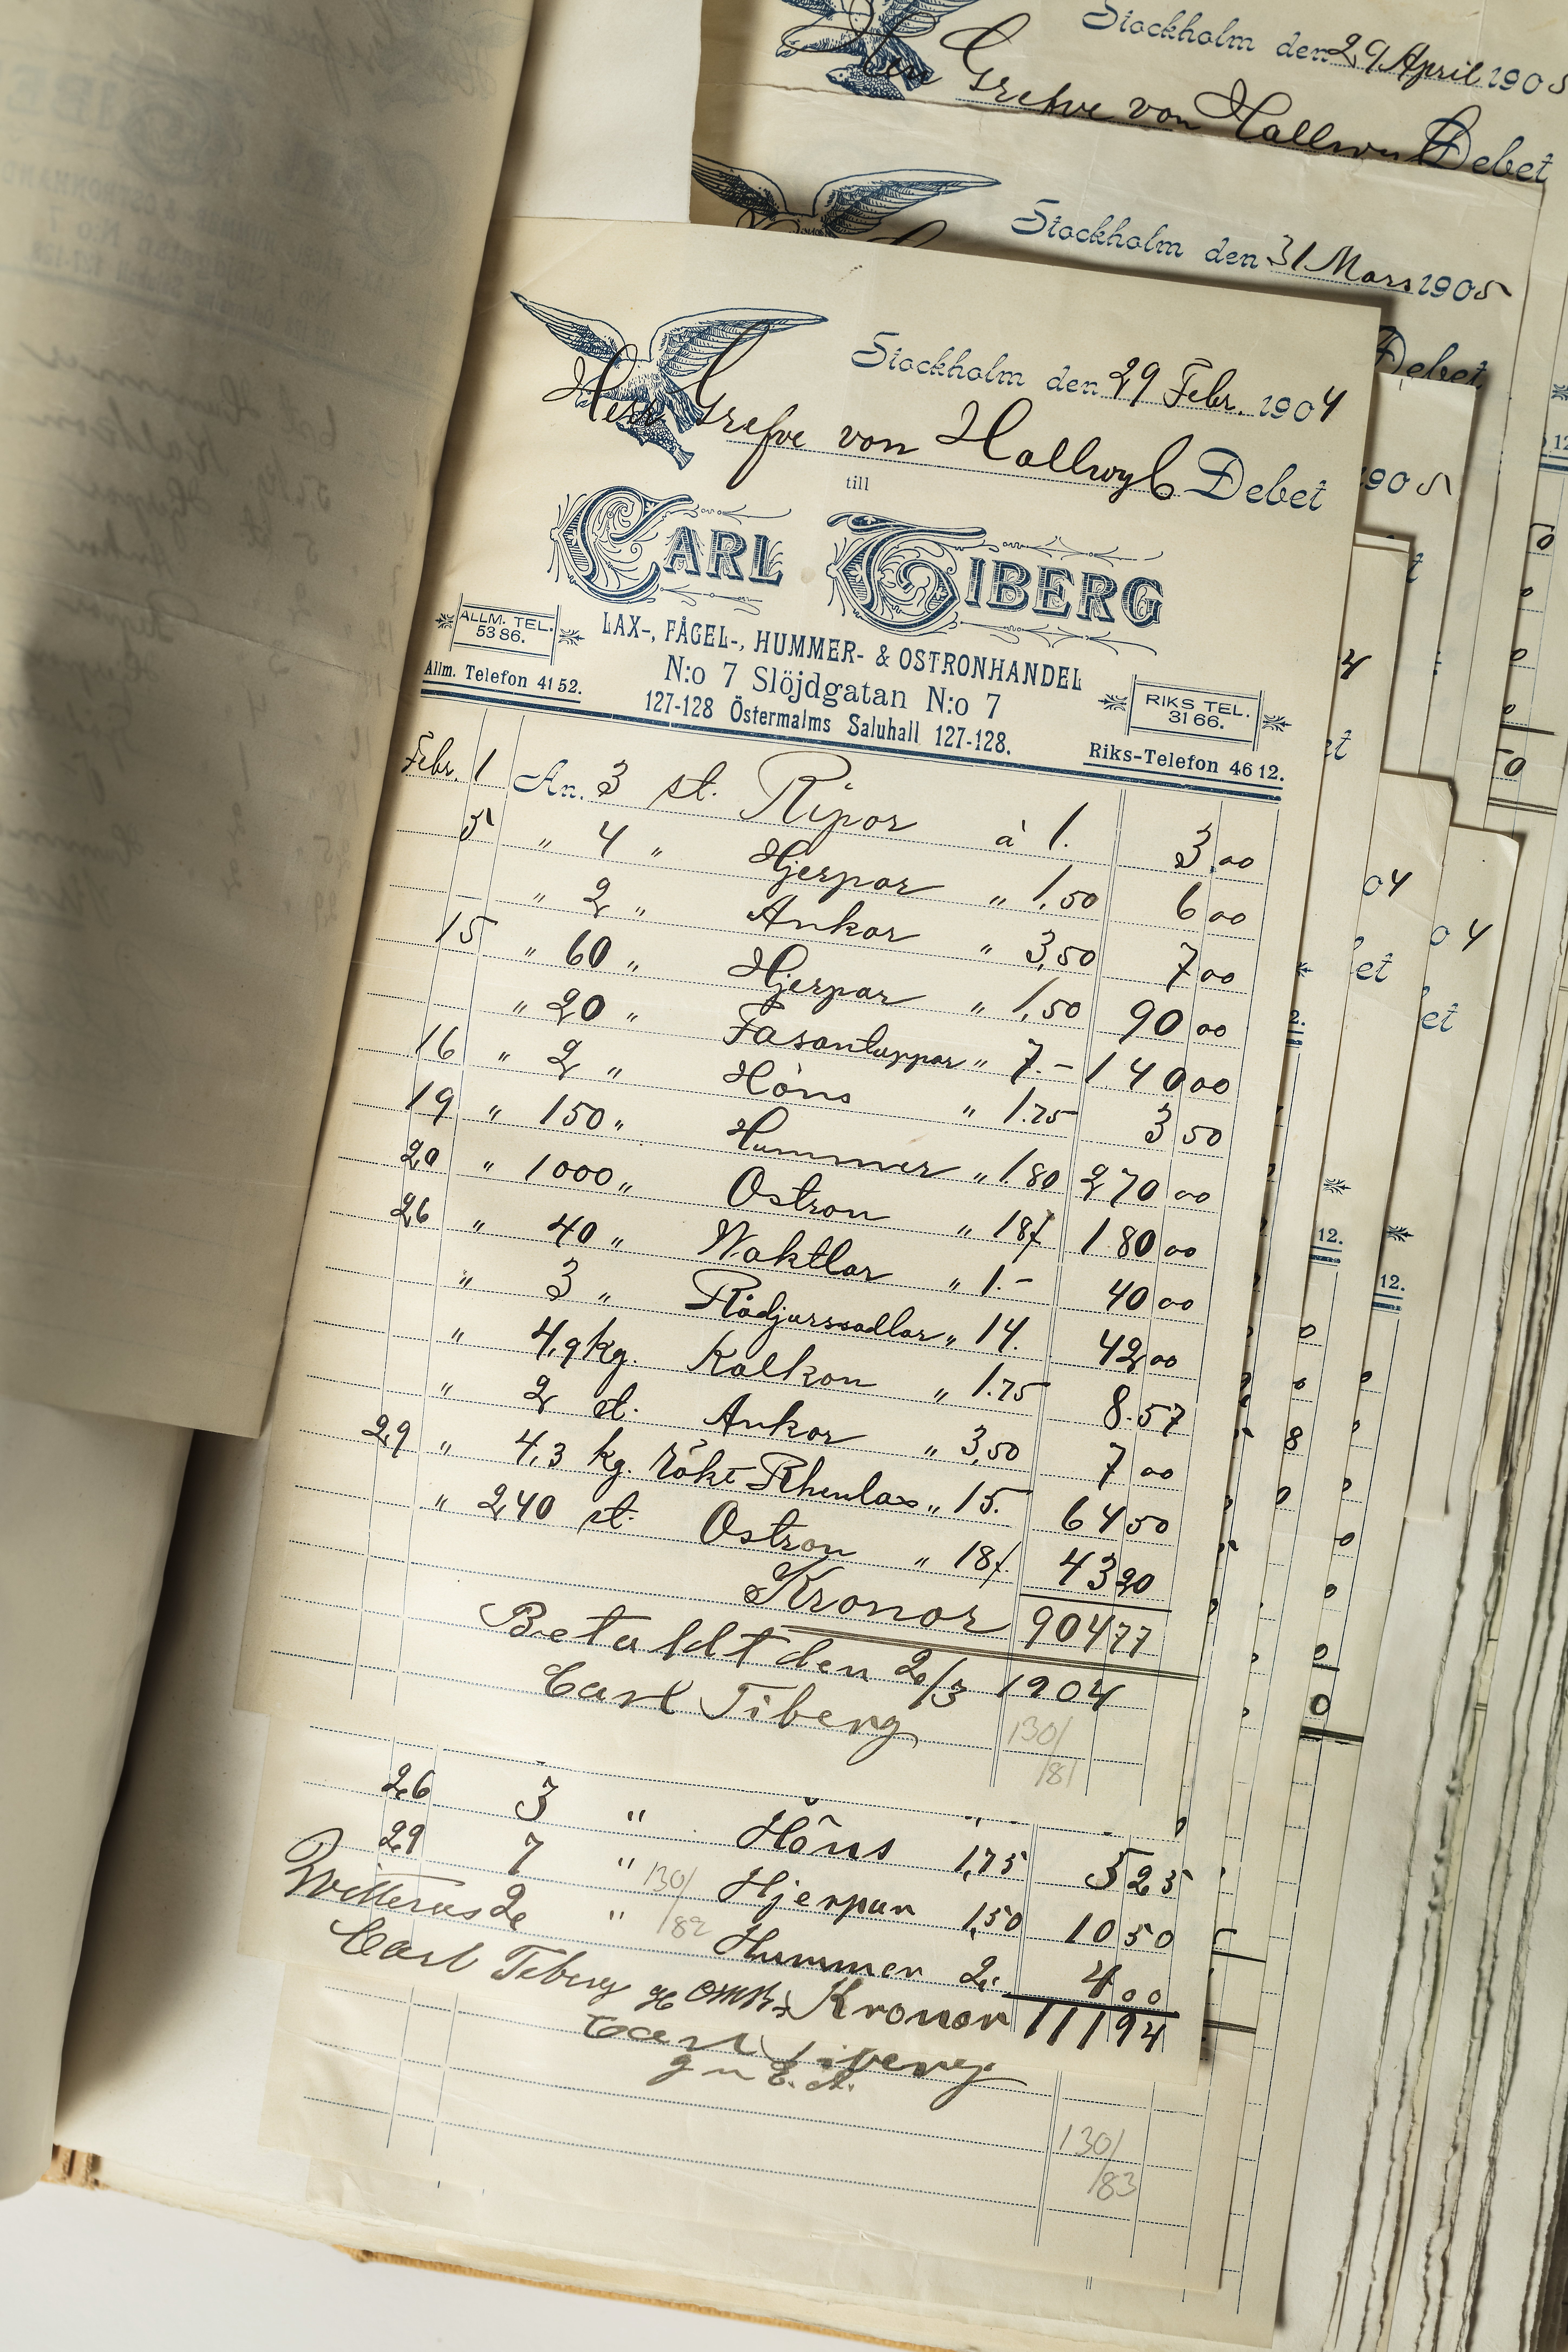 Stockholm den 29 April 1905
Herr Grefve von Hallwyl Debet
Stockholm den 31 Mars 1905
Debet
Stockholm den 29 Febr. 1904
Herr Grefve von Hallwyl Debet
till
CARL TIBERG
LAX-, FÅGEL-, HUMMER- & OSTRONHANDEL
ALLM. TEL. 53 86.
N:o 7 Slöjdgatan N:o 7
RIKS TEL. 31 66.
Allm. Telefon 41 52.
127-128 Östermalms Saluhall 127-128.
Riks-Telefon 46 12.
Febr. 1 An. 3 st. Ripor à 1. 3.00
5 " 4 " Hjerpar " 1,50 6 00
" 2 " Ankor " 3,50 7 00
15 " 60 " Hjerpar " 1,50 90 00
" 20 " Fasantuppar " 7.- 140 00
16 " 2 " Höns " 1.75 3 50
19 " 150 " Hummer " 1.80 270 00
20 " 1000 " Ostron " 18/ 180 00
26 " 40 " Waktlar " 1.- 40 00
" 3 " Rådjurssadlar " 14. 42 00
" 4,9 kg. Kalkon " 1.75 8.57
" 2 st. Ankor " 3,50 7 00
29 " 4,3 kg. rökt Rhenlax " 15. 64 50
" 240 st. Ostron " 18/. 43 20
Kronor 904 77
Betaldt den 2/3 1904
Carl Tiberg
130/
/81
26 3 " Höns 1,75 5 25
29 7 " Hjerpar 1,50 10 50
130/
/82
Qvitteras 2 " Hummer 2. 4 00
Carl Tiberg Kronor 111 94
Carl Tiberg
130/
/83